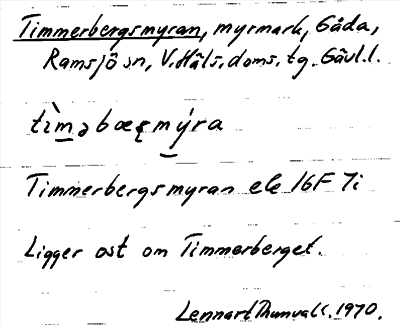 Timmerbergsmyran, myrmark, Gåda,
Ramsjö sn, V. Häls. doms. tg. Gävl. l.
tìm̲əbæʀmýra
Timmerbergsmyran ek 16F 7i
Ligger ost om Timmerberget.
Lennart Thunvall. 1970.